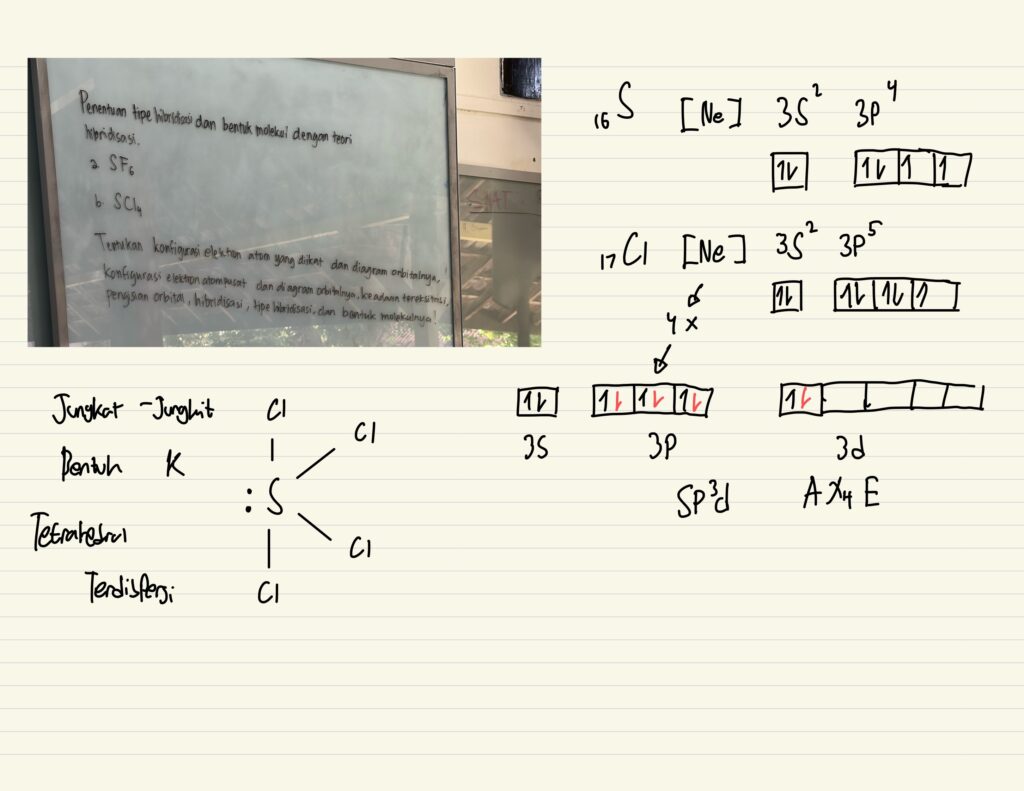 Penentuan tipe hibridisasi dan bentuk molekul dengan teori
hibridisasi.
a. SF₆
b. SCl₄
Tentukan konfigurasi elektron atom yang diikat dan diagram orbitalnya,
konfigurasi elektron atom pusat dan diagram orbitalnya, keadaan tereksitasi,
pengisian orbital, hibridisasi, tipe hibridisasi, dan bentuk molekulnya!
₁₆S [Ne] 3S² 3P⁴
1⇂ 1⇂ 1 1
₁₇Cl [Ne] 3S² 3P⁵
1⇂ 1⇂ 1⇂ 1
4 x
1⇂ 1⇂ 1⇂ 1⇂ 1⇂
3S 3P 3d
SP³d AX₄E
Jungkat - Jungkit
Bentuk K
Tetrahedral
Terdisfersi
Cl
Cl
: S
Cl
Cl